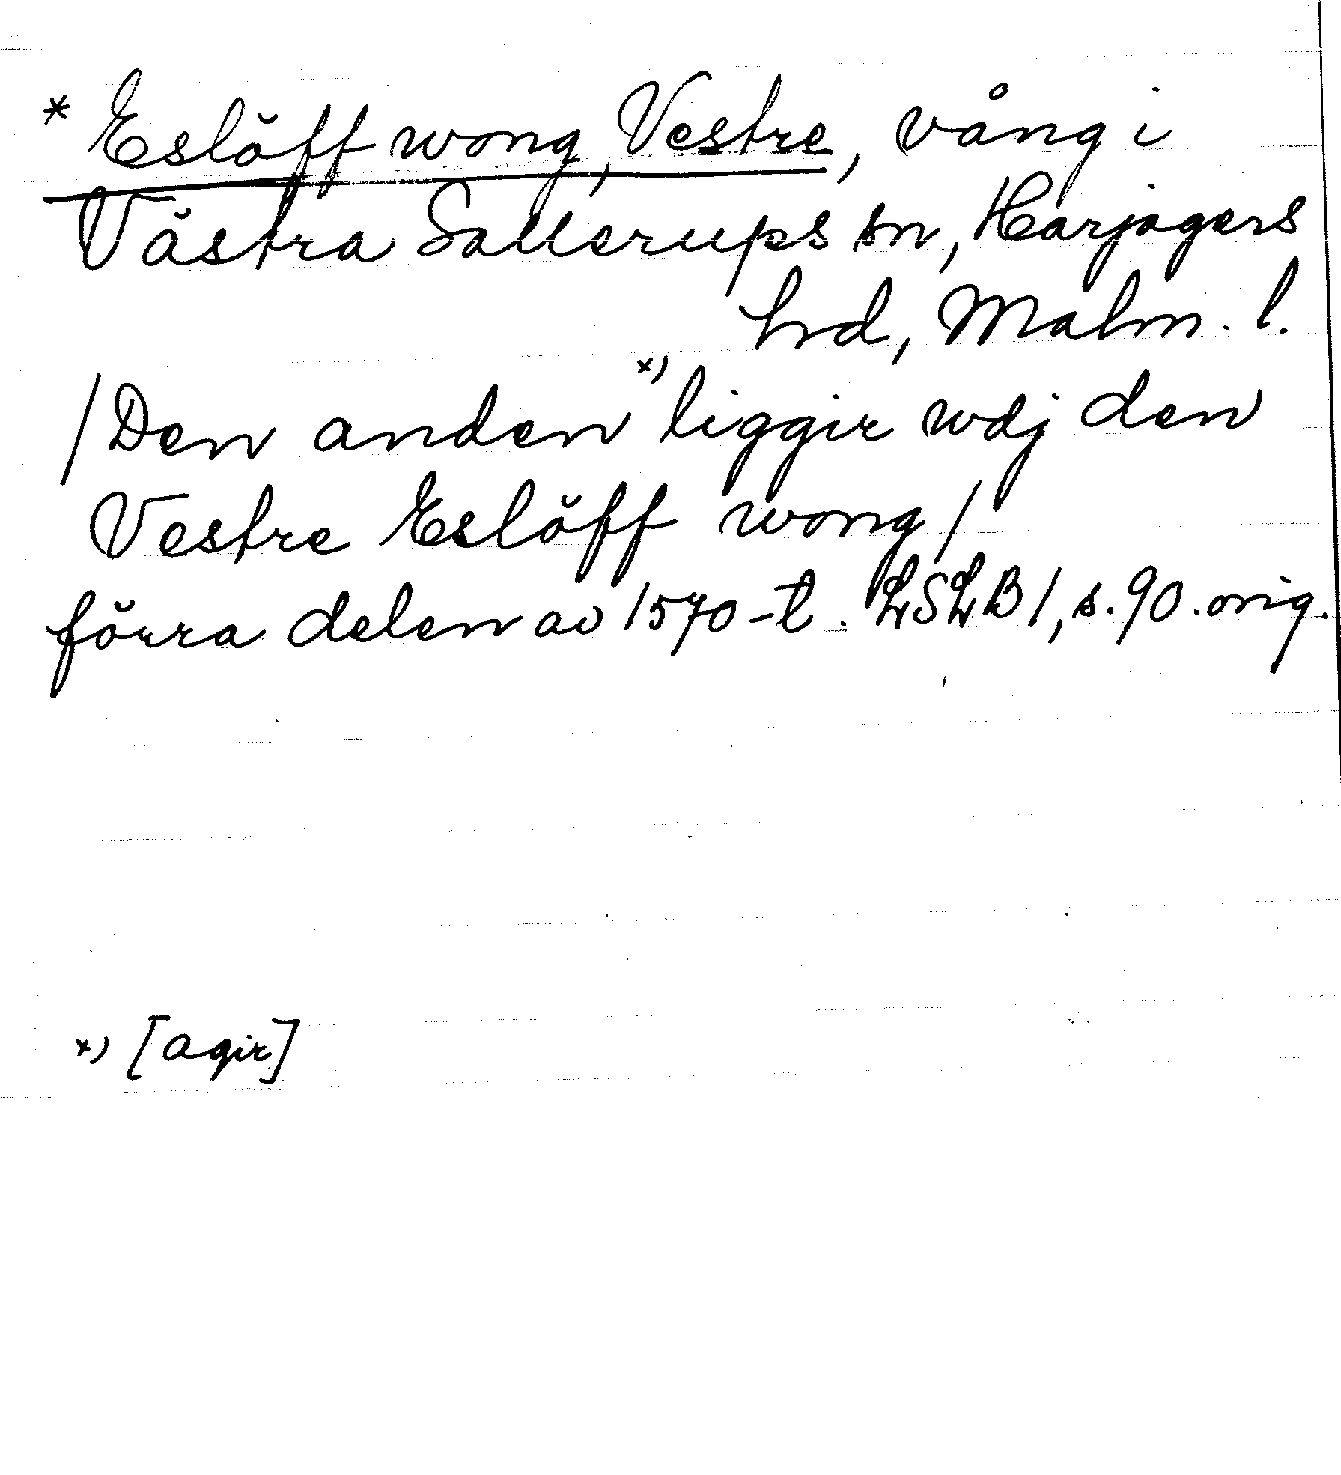 * Eslöff wong, Vestre, vång i
Västra Sallerups sn, Harjagers
hrd, Malm. l.
/Den anden *) liggir wdj den
Vestre Eslöff wong/
förra delen av 1570-t. LSLB 1, s. 90. orig.
*) [agir]